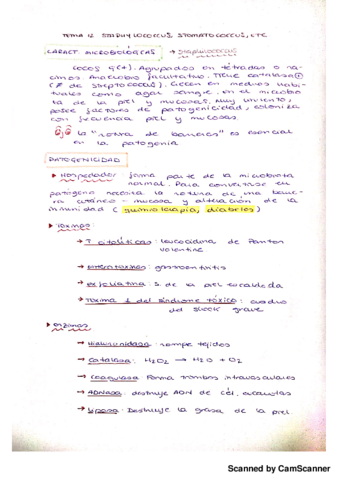 TEMA 12. STAPHYLOCOCCUS, STOMATOCOCCUS, ETC
CARACT. MICROBIOLÓGICAS → Staphylococcus
COCOS G(+). Agrupados en tétradas o ra-
cimos. Anaerobio facultativo. Tiene catalasa ⊕
(≠ de STREPTOCOCCUS). Crecen en medios habi-
tuales como agar sangre. en el microbio
ta de la piel y mucosas. Muy
posee factores de patogenicidad, coloniza
con frecuencia piel y mucosas.
la "rotura de barreras" es esencial
en la patogenia
PATOGENICIDAD
▸ Hospedador forma parte de la microbiota
normal. Para convertirse en
patógeno necesita la rotura de una barre-
ra cutáneo - mucosa y alteración de la
inmunidad (quimioterapia, diabetes)
▸ Toxinas:
→ T. citolíticas: leucocidina de Panton
Valentine
→ enterotoxinas: gastroenteritis
→ exfoliatina: S. de la piel escaldada
→ Toxina 1 del síndrome tóxico: cuadro
del shock grave
▸ enzimas
→ Hialuronidasa: rompe tejidos
→ Catalasa: H2O2 → H2O + O2
→ Coagulasa: Forma trombos intravasculares
→ ADNasa: destruye ADN de cél. exhaustas
→ Lipasa: Destruye la grasa de la piel.
Scanned by CamScanner